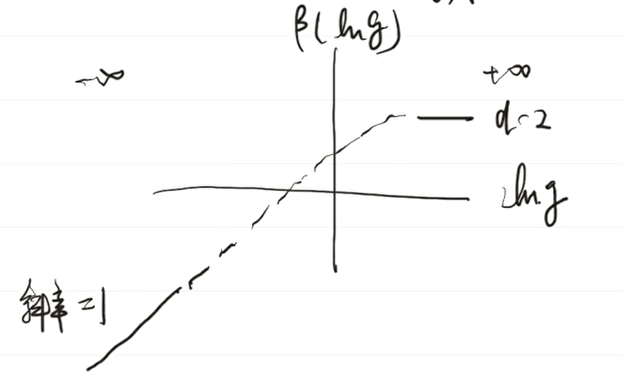 β(ln g)
-∞
+∞
d-2
ln g
斜率=1